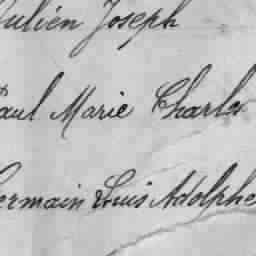 Julien Joseph
Paul Marie Charles
Germain Louis Adolphe